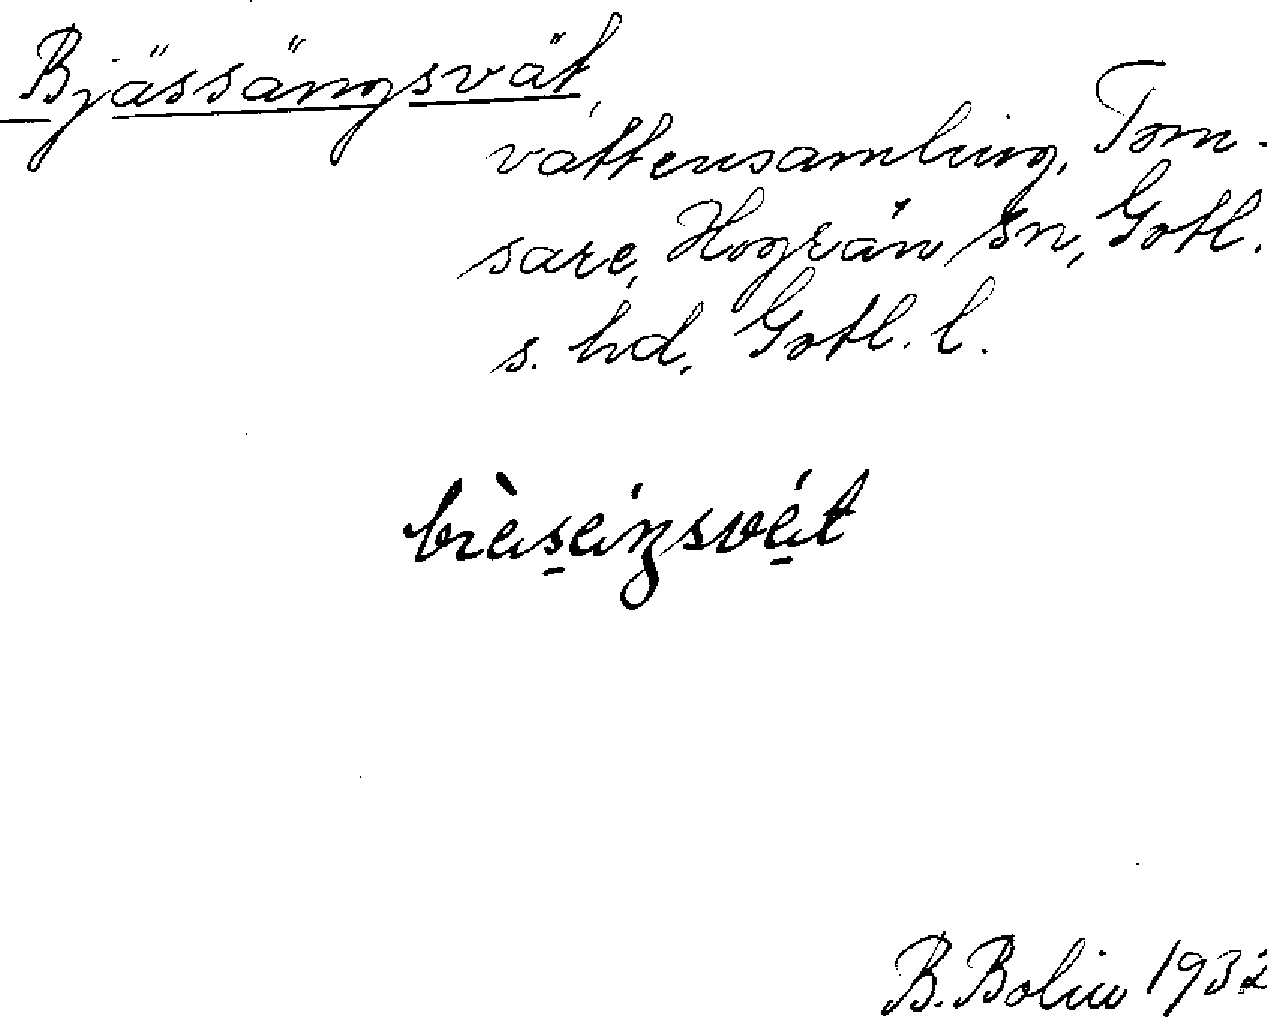 Bjässängsvät,
vattensamling, Tom-
sare, Hogrän sn, Gotl.
s. hd, Gotl. l.
B. Bolin 1932